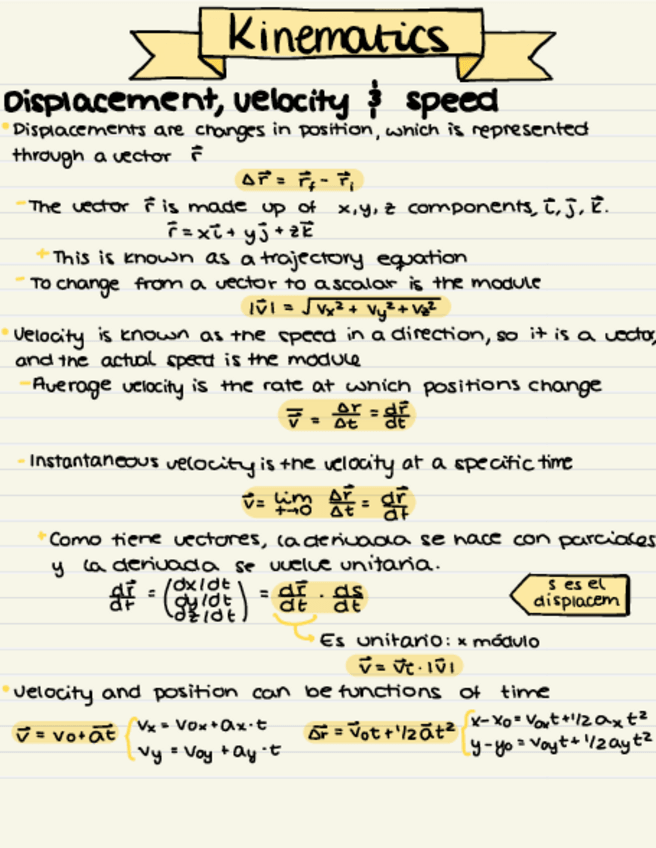 Kinematics
Displacement, velocity & speed
• Displacements are changes in position, which is represented
through a vector r⃗
Δr⃗ = r⃗f - r⃗i
- The vector r⃗ is made up of x, y, z components, i⃗, j⃗, k⃗.
r⃗ = xi⃗ + yj⃗ + zk⃗
+ This is known as a trajectory equation
- To change from a vector to a scalar is the module
|v⃗| = √(Vx² + Vy² + Vz²)
• Velocity is known as the speed in a direction, so it is a vector,
and the actual speed is the module
- Average velocity is the rate at which positions change
v̅ = Δr/Δt = dr⃗/dt
- Instantaneous velocity is the velocity at a specific time
v⃗ = lim t→0 Δr⃗/Δt = dr⃗/dt
• Como tiene vectores, la derivada se hace con parciales
y la derivada se vuelve unitaria.
dr⃗/dt = (dx/dt dy/dt dz/dt) = dr⃗/dt · ds/dt
s es el
displacem
Es unitario: x módulo
v⃗ = v⃗t · |v⃗|
• Velocity and position can be functions of time
v⃗ = vo + a⃗t { Vx = Vox + ax · t Δr⃗ = v⃗ot + 1/2 a⃗t² { x-xo = Voxt + 1/2 axt²
Vy = Voy + ay · t y-yo = Voyt + 1/2 ayt²